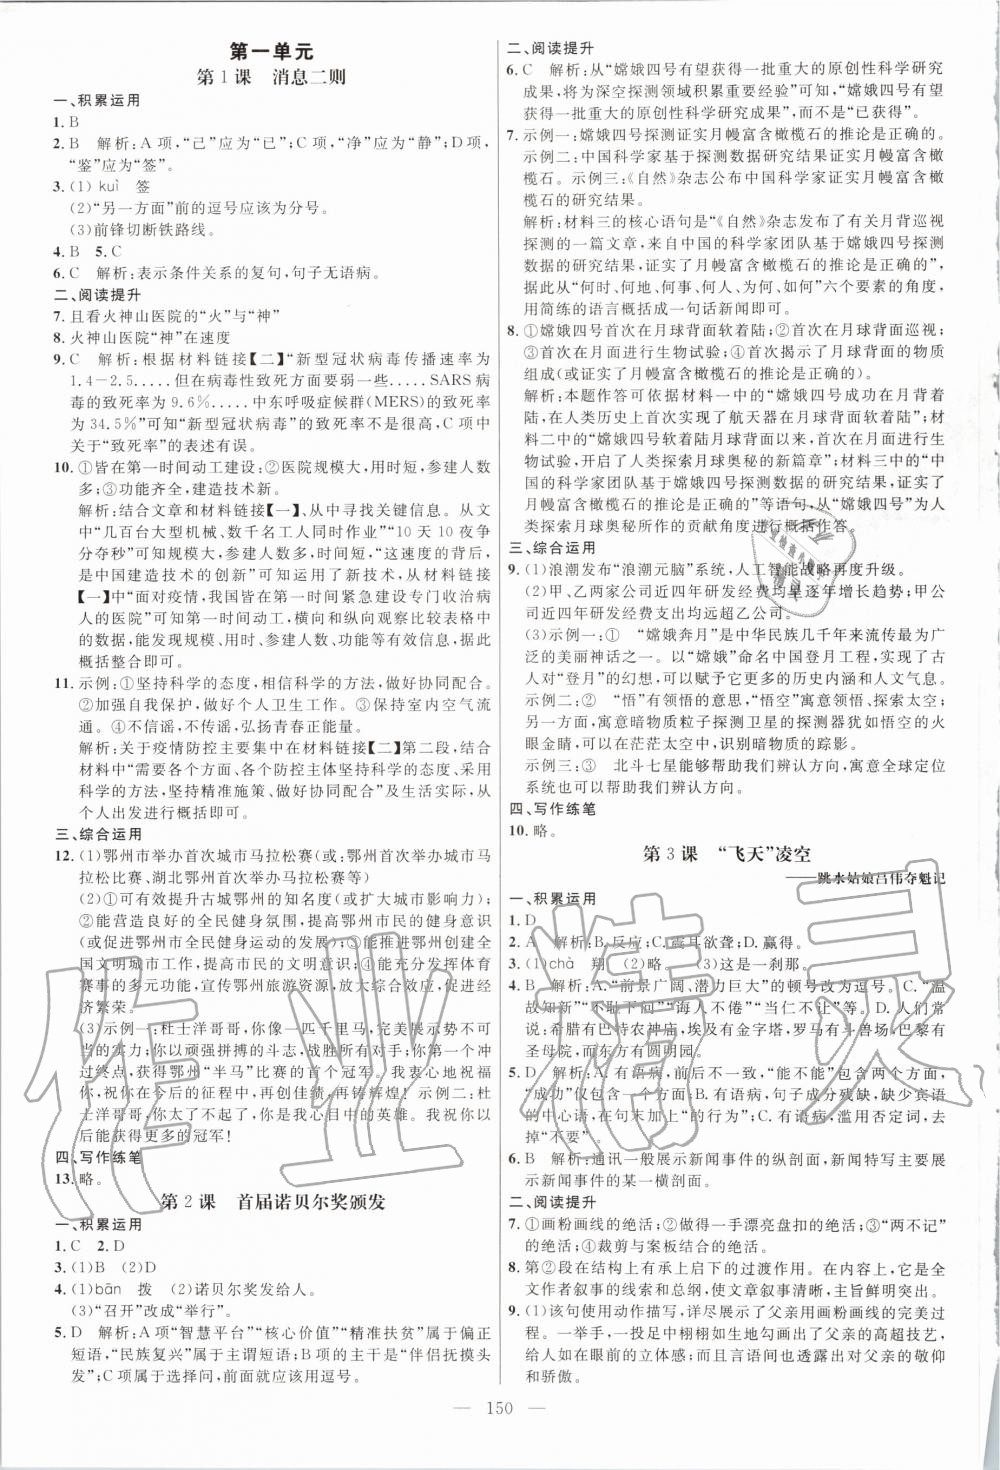 第一单元
第1课　消息二则
一、积累运用
1. B
2. B　解析：A项，“己”应为“已”；C项，“净”应为“静”；D项，
“鉴”应为“签”。
3. (1) kuì　签
(2)“另一方面”前的逗号应该为分号。
(3)前锋切断铁路线。
4. B　5. C
6. C　解析：表示条件关系的复句，句子无语病。
二、阅读提升
7. 且看火神山医院的“火”与“神”
8. 火神山医院“神”在速度
9. C　解析：根据材料链接【二】“新型冠状病毒传播速率为
1.4－2.5……但在病毒性致死方面要弱一些……SARS病
毒的致死率为9.6%……中东呼吸症候群(MERS)的致死率
为34.5%”可知“新型冠状病毒”的致死率不是很高，C项中
关于“致死率”的表述有误。
10. ①皆在第一时间动工建设；②医院规模大，用时短，参建人数
多；③功能齐全，建造技术新。
解析：结合文章和材料链接【一】，从中寻找关键信息。从文
中“几百台大型机械、数千名工人同时作业”“10天10夜争
分夺秒”可知规模大，参建人数多，时间短，“这速度的背后，
是中国建造技术的创新”可知运用了新技术，从材料链接
【一】中“面对疫情，我国皆在第一时间紧急建设专门收治病
人的医院”可知第一时间动工，横向和纵向观察比较表格中
的数据，能发现规模、用时、参建人数、功能等有效信息，据此
概括整合即可。
11. 示例：①坚持科学的态度，相信科学的方法，做好协同配合。
②加强自我保护，做好个人卫生工作。③保持室内空气流
通。④不信谣，不传谣，弘扬青春正能量。
解析：关于疫情防控主要集中在材料链接【二】第二段，结合
材料中“需要各个方面、各个防控主体坚持科学的态度、采用
科学的方法，坚持精准施策、做好协同配合”及生活实际，从
个人出发进行概括即可。
三、综合运用
12. (1)鄂州市举办首次城市马拉松赛（或：鄂州市举办首次半程
马拉松比赛、湖北省鄂州市举办首次城市马拉松赛等）
(2)①可有效提升古城鄂州的知名度，展示鄂州的发展风貌；
②能营造良好的全民健身氛围，提高市民的健身意识
（或：促进鄂州市全民健身运动的发展）；③能推进鄂州创建全
国文明城市工作，提高市民的文明意识；④能充分发挥体育
赛事的多元功能，宣传鄂州旅游资源，放大综合效应，促进经
济繁荣。
(3)示例一：杜士洋哥哥，你像一匹千里马，完美展示势不可
当的实力；你以顽强拼搏的斗志，战胜所有对手；你第一个冲
过终点，获得鄂州“半马”比赛的首个冠军！我衷心地祝贺
你，祝你在今后的征程中，再创佳绩，再铸辉煌！示例二：杜
士洋哥哥，你太了不起了，你是我心目中的英雄。祝愿你以
后能获得更多的冠军！
四、写作练笔
13. 略。
第2课　首届诺贝尔奖颁发
一、积累运用
1. C　2. D
3. (1)B　(2)D
4. (1)bān　拨　(2)诺贝尔奖发给人。
(3)“召开”改成“举行”。
5. D　解析：A项“智慧平台”“核心价值”“精准扶贫”属于偏正
短语，“民族复兴”属于主谓短语；B项的主干是“伴侣抚摸头
发”；C项属于选择问，前面就应该用逗号。
二、阅读提升
6. C　解析：从“嫦娥四号有望获得一批重大的原创性科学研究
成果，将为深空探测领域积累重要经验”可知，“嫦娥四号有望
获得一批重大的原创性科学研究成果”，而不是“已获得”。
7. 示例一：嫦娥四号探测证实月幔富含橄榄石的推论是正确的。
示例二：中国科学家基于探测数据研究结果证实月幔富含橄
榄石。示例三：《自然》杂志公布中国科学家证实月幔富含橄
榄石的研究结果。
解析：材料三的核心语句是“《自然》杂志发布了有关月背巡视
探测的一篇文章，来自中国的科学家团队基于嫦娥四号探测
数据的研究结果，证实了月幔富含橄榄石的推论是正确的”，
据此从“何时、何地、何事、何人、为何、如何”六个要素的角度，
用简练的语言概括成一句话新闻即可。
8. ①嫦娥四号首次在月球背面软着陆；②首次在月背面巡视；
③首次在月面进行生物试验；④首次探明月球背面的物质
组成（或证实了月幔富含橄榄石的推论）。
解析：本题作答可依据材料一中的“嫦娥四号成功在月背着
陆，在人类历史上首次实现了航天器在月球背面软着陆”；材
料二中的“嫦娥四号软着陆月球背面并首次在月面进行生物
试验，开启了人类探索月球奥秘的新篇章”；材料三中的“中国
的科学家团队基于嫦娥四号探测数据的研究结果，证实了
月幔富含橄榄石的推论是正确的”等语句，从“嫦娥四号”为人
类探索月球奥秘所作的贡献角度进行概括作答。
三、综合运用
9. (1)浪潮发布“浪潮元脑”系统，人工智能战略再度升级。
(2)甲、乙两家公司近四年研发经费均呈逐年增长趋势；甲公
司近四年研发经费支出均远超乙公司。
(3)示例一：①　“嫦娥奔月”是中华民族几千年来流传最为广
泛的美丽神话之一。以“嫦娥”命名中国登月工程，实现了古
人对“登月”的幻想，可以赋予更多的历史内涵和人文气息。
示例二：②　“悟”有领悟的意思，“悟空”寓意领悟、探索太空；
另一方面，寓意暗物质粒子探测卫星的探测器犹如悟空的火
眼金睛，可以在茫茫太空中，识别暗物质的踪影。
示例三：③　北斗七星能够帮助我们辨认方向，寓意全球定位
系统也可以帮助我们辨认方向。
四、写作练笔
10. 略。
第3课　“飞天”凌空
——跳水姑娘吕伟夺魁记
一、积累运用
1. D
2. A　解析：B. 反应；C. 震耳欲聋；D. 赢得。
3. (1)chà　翔　(2)略。　(3)这是一刹那。
4. B　解析：A. “前景广阔、潜力巨大”的顿号改为逗号。C. “温
故知新”“不耻下问”“诲人不倦”“当仁不让”等。D. 人们常
说：希腊有巴特农神庙，埃及有金字塔，罗马有斗兽场，巴黎有
圣母院，而东方有圆明园。
5. D　解析：A. 有语病，前后不一致，“能不能”包含两个方面，
“成功”仅包含一个方面；B. 有语病，句子成分残缺，缺少宾语
的中心语，在句末加上“的行为”；C. 有语病，滥用否定词，去
掉“不要”。
6. B　解析：通讯一般展示新闻事件的纵剖面，新闻特写主要展
示新闻事件的某一横剖面。
二、阅读提升
7. ①画粉画线的绝活；②做得一手漂亮盘扣的绝活；③“两不记”
的绝活；④裁剪与案板结合的绝活。
8. 第②段在结构上有承上启下的过渡作用。在内容上，它是全
文作者叙事的线索和总纲，使文章叙事清晰，主旨鲜明突出。
9. (1)该句使用动作描写，详尽展示了父亲用画粉画线的完美过
程。一举手，一投足中栩栩如生地勾画出了父亲的高超技艺，
给人如在眼前的立体感；与此同时，也透露出对父亲的敬仰
和骄傲。
— 150 —
作业精灵